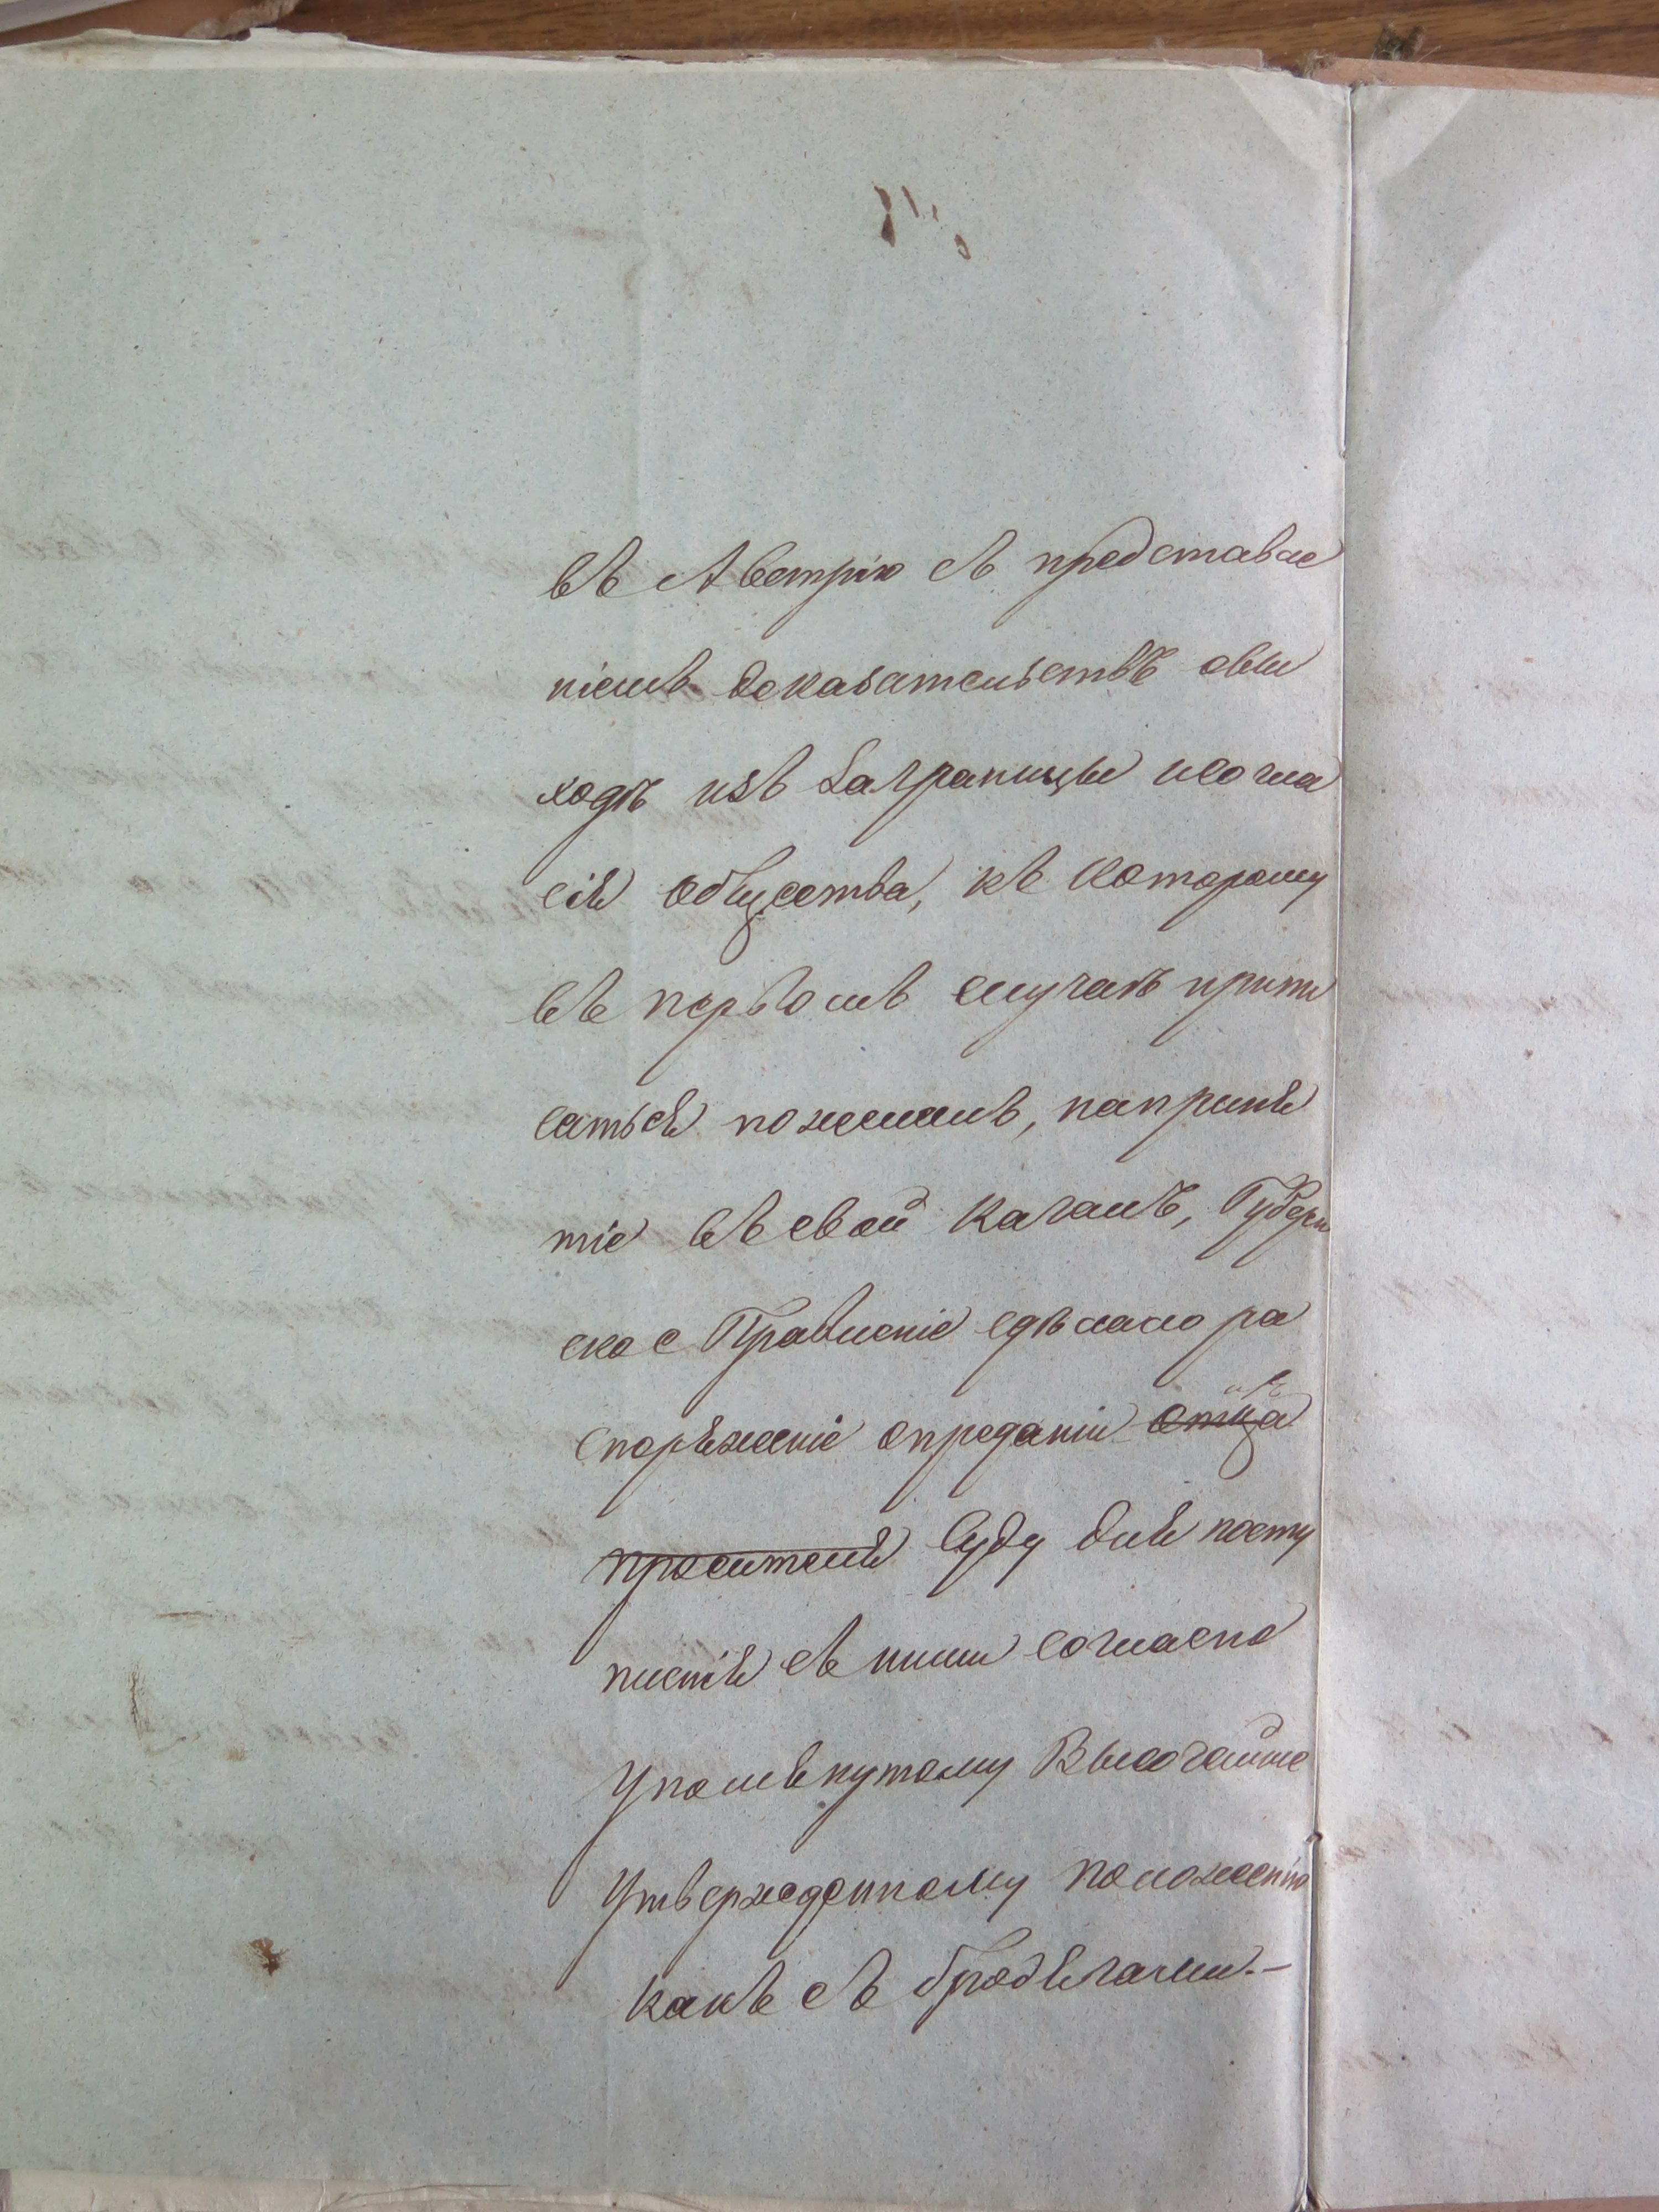 въ Австрію съ представле
ніемъ доказательствъ овы
ходѣ изъ Заграницы исогла
сія общества, къ которому
въ первомъ случаѣ припи
саться пожелалъ, напримѣ
тіе въ свой кагалъ, Губерн
ское Правленіе сдѣлало ра
споряженіе опреданіи отца
ихъ
просителя Суду для посту
пленія съ ними согласно
упомянутому Высочайше
утвержденному положенію
какъ съ бродягами.—